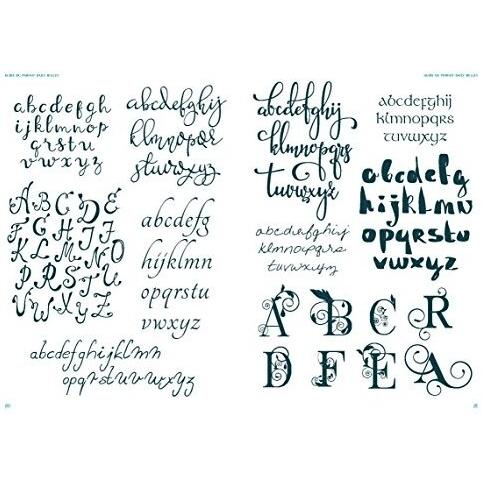 abcdefgh
ijklmnop
qrstu
vwxyz
abcdefghij
klmnopqrs
tuvwxyz
ABCDE
FGHIJ
KLMNO
PQRSTU
VWXYZ
abcdefg
hijklmn
opqrstu
vwxyz
abcdefghijklmn
opqrstuvwxyz
abcdefghij
klmnopqrs
tuvwxyz
abcdefghij
klmnopqrs
tuvwxyz
abcdefghij
klmnopqrs
tuvwxyz
abcdefg
hijklmn
opqrstu
vwxyz
A B C R
D F E A